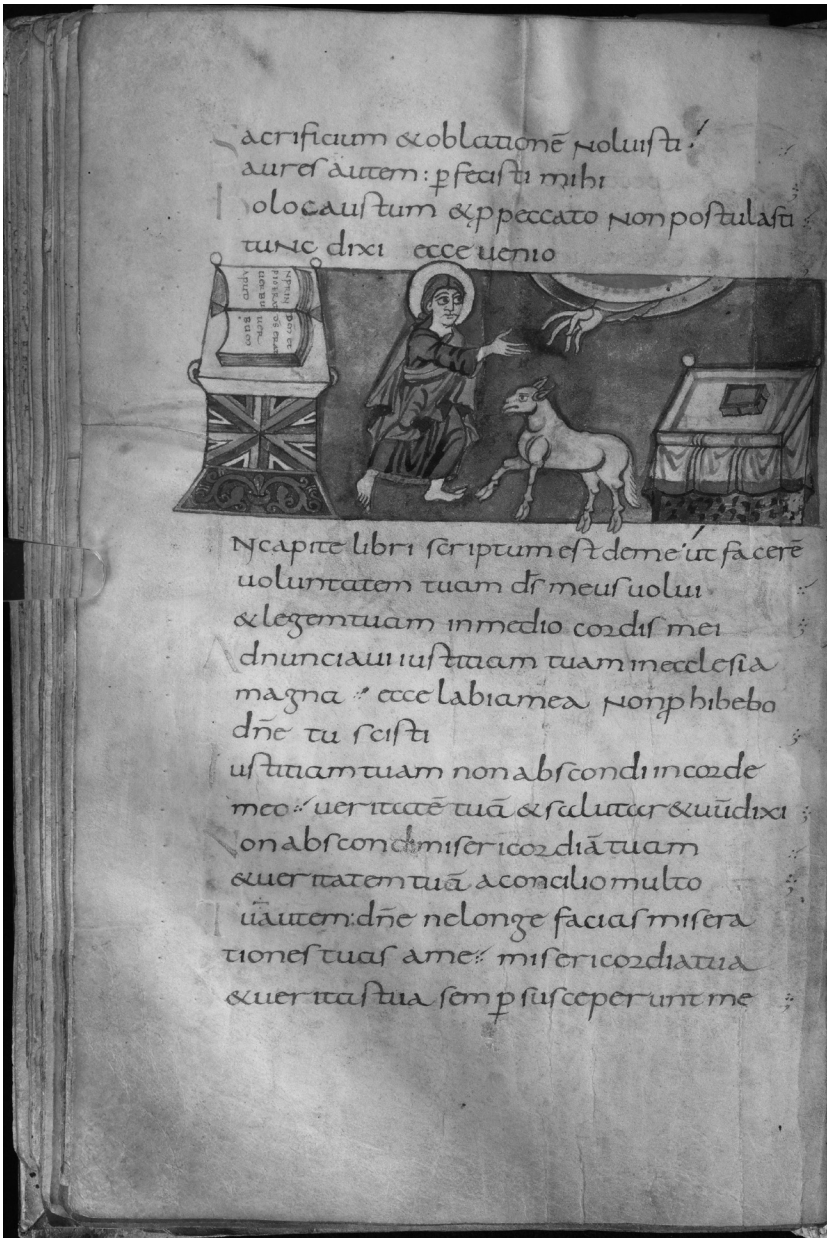 acrificium &oblationē noluisti
aures autem: pfecisti mihi
olocaustum &ppeccato non postulasti
tunc dixi ecce uenio
ncapite libri scriptum est deme ut facerē
uoluntatem tuam ds meus uolui
&legemtuam inmedio cordis mei
adnunciaui iustitiam tuam inecclesia
magna ecce labiamea nonphibebo
dn̄e tu scisti
ustitiamtuam non abscondi incorde
meo ueritatē tuā &salutar&uū dixi
onabscondi misericordiā tuam
&ueritatemtuā aconcilio multo
u autem: dn̄e nelonge facias misera
tiones tuas ame misericordiatua
&ueritastua semp susceperunt me